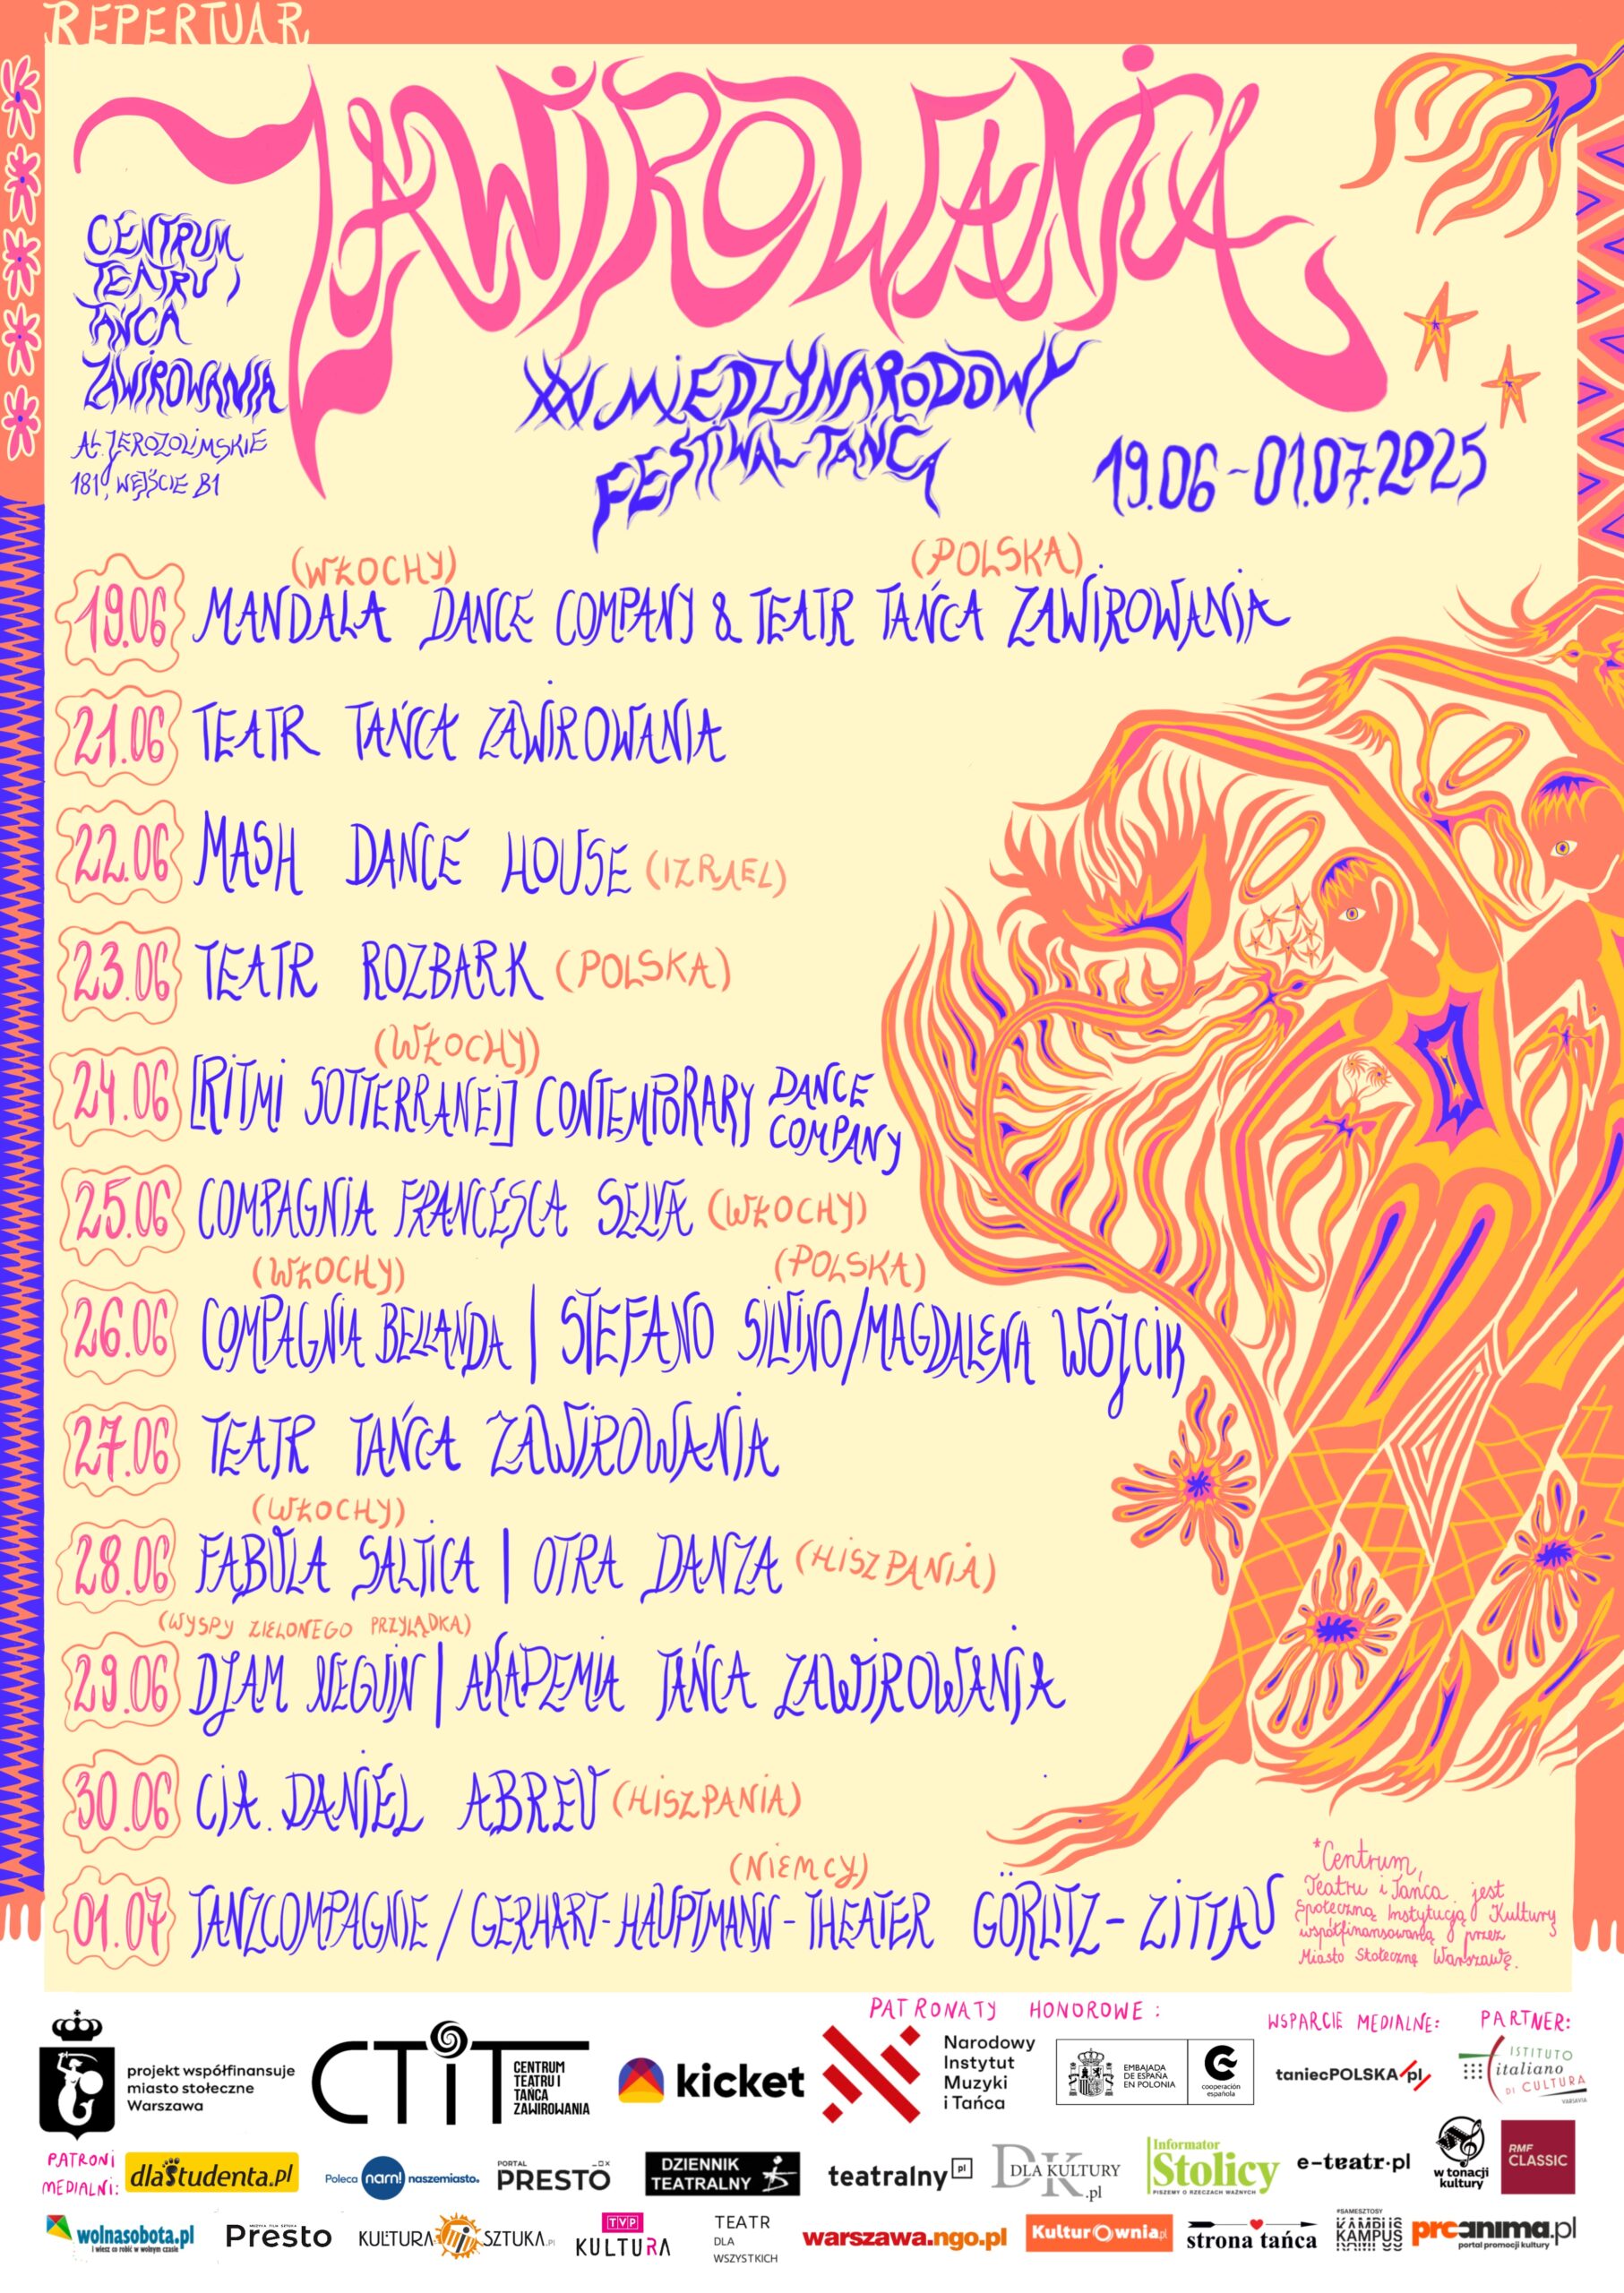 REPERTUAR
ZAWIROWANIA
CENTRUM
TEATRU i
TAŃCA
ZAWIROWANIA
AL. JEROZOLIMSKIE
181, WEJŚCIE B1
XXI MIĘDZYNARODOWY
FESTIWAL TAŃCA
19.06-01.07.2025
(WŁOCHY) (POLSKA)
19.06 MANDALA DANCE COMPANY & TEATR TAŃCA ZAWIROWANIA
21.06 TEATR TAŃCA ZAWIROWANIA
22.06 MASH DANCE HOUSE (IZRAEL)
23.06 TEATR ROZBARK (POLSKA)
(WŁOCHY)
24.06 [RITMI SOTTERRANEI] CONTEMPORARY DANCE
COMPANY
25.06 COMPAGNIA FRANCESCA SELVA (WŁOCHY)
(WŁOCHY) (POLSKA)
26.06 COMPAGNIA BELLANDA | STEFANO SILVINO/MAGDALENA WÓJCIK
27.06 TEATR TAŃCA ZAWIROWANIA
(WŁOCHY)
28.06 FABULA SALTICA | OTRA DANZA (HISZPANIA)
(WYSPY ZIELONEGO PRZYLĄDKA)
29.06 DJAM NEGUIN | AKADEMIA TAŃCA ZAWIROWANIA
30.06 CIA. DANIEL ABREU (HISZPANIA)
(NIEMCY)
01.07 TANZCOMPAGNIE / GERHART-HAUPTMANN-THEATER GÖRLITZ-ZITTAU
*Centrum
Teatru i Tańca jest
Społeczną Instytucją Kultury
współfinansowaną przez
Miasto Stołeczne Warszawę.
PATRONATY HONOROWE:
WSPARCIE MEDIALNE:
PARTNER:
projekt współfinansuje
miasto stołeczne
Warszawa
CTiT
CENTRUM
TEATRU I
TAŃCA
ZAWIROWANIA
kicket
Narodowy
Instytut
Muzyki
i Tańca
EMBAJADA
DE ESPAÑA
EN POLONIA
cooperación
española
taniecPOLSKA/pl
ISTITUTO
italiano
DI CULTURA
VARSAVIA
PATRONI
MEDIALNI:
dlastudenta.pl
Poleca nam! naszemiasto.
PORTAL
PRESTO
DZIENNIK
TEATRALNY
teatralny pl
DK
DLA KULTURY
.pl
Informator
Stolicy
PISZEMY O RZECZACH WAŻNYCH
e-teatr.pl
w tonacji
kultury
RMF
CLASSIC
wolnasobota.pl
i wiesz co robić w wolnym czasie
Presto
KULTURA SZTUKA.PL
TVP
KULTURA
TEATR
DLA
WSZYSTKICH
warszawa.ngo.pl
Kulturownia.pl
strona tańca
#SAMESZTOSY
KAMPUS
KAMPUS
proanima.pl
portal promocji kultury